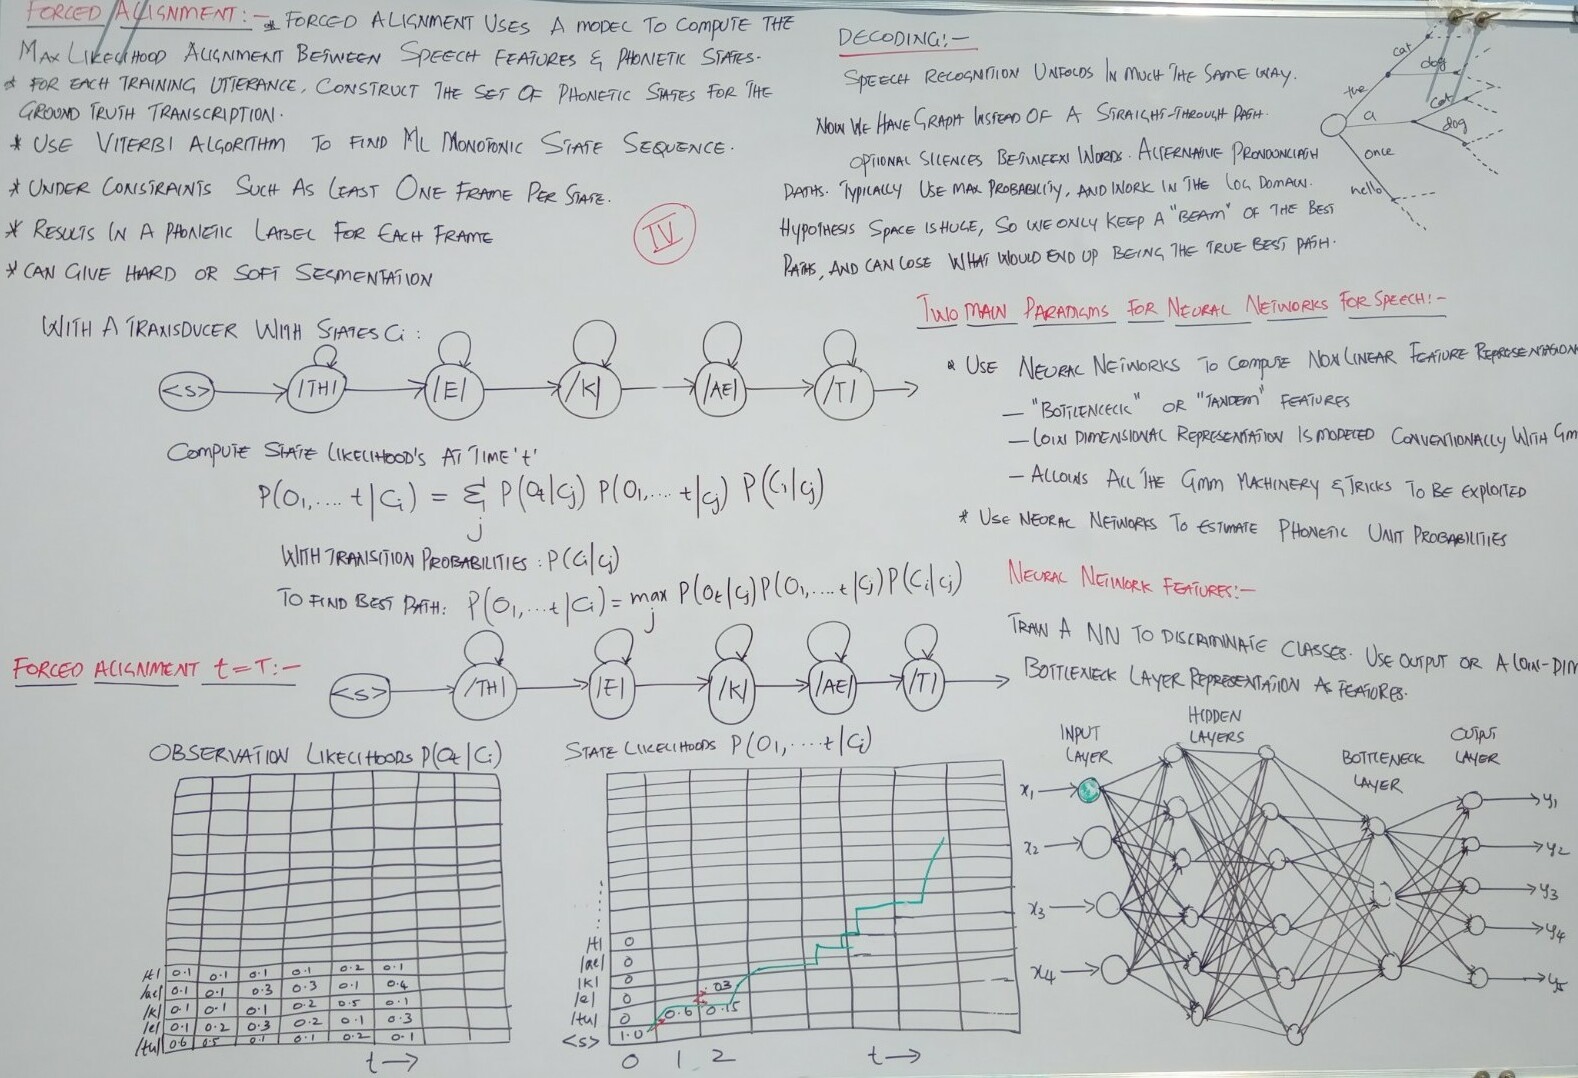 FORCED ALIGNMENT:- * FORCED ALIGNMENT USES A MODEL TO COMPUTE THE
MAX LIKELIHOOD ALIGNMENT BETWEEN SPEECH FEATURES & PHONETIC STATES.
* FOR EACH TRAINING UTTERANCE, CONSTRUCT THE SET OF PHONETIC STATES FOR THE
GROUND TRUTH TRANSCRIPTION.
* USE VITERBI ALGORITHM TO FIND ML MONOTONIC STATE SEQUENCE.
* UNDER CONSTRAINTS SUCH AS LEAST ONE FRAME PER STATE.
* RESULTS IN A PHONETIC LABEL FOR EACH FRAME
* CAN GIVE HARD OR SOFT SEGMENTATION
IV
WITH A TRANSDUCER WITH STATES Ci :
<s> /TH/ /E/ /K/ /AE/ /T/
COMPUTE STATE LIKELIHOOD'S AT TIME 't'
P(O1,....t|Ci) = Σj P(Ot|Cj) P(O1,....t|Cj) P(Ci|Cj)
WITH TRANSITION PROBABILITIES : P(Ci|Cj)
TO FIND BEST PATH: P(O1,...t|Ci) = max j P(Ot|Cj) P(O1,....t|Cj) P(Ci|Cj)
FORCED ALIGNMENT t=T:-
<s> /TH/ /E/ /K/ /AE/ /T/
OBSERVATION LIKELIHOODS P(Ot|Ci)
/t/ 0.1 0.1 0.1 0.1 0.2 0.1
/ae/ 0.1 0.1 0.3 0.3 0.1 0.4
/k/ 0.1 0.1 0.1 0.2 0.5 0.1
/e/ 0.1 0.2 0.3 0.2 0.1 0.3
/th/ 0.6 0.5 0.1 0.1 0.2 0.1
t→
STATE LIKELIHOODS P(O1,....t|Ci)
/t/ 0
/ae/ 0
/k/ 0
/e/ 0 .03
/th/ 0 0.6 0.15
<s> 1.0
0 1 2 t→
DECODING:-
SPEECH RECOGNITION UNFOLDS IN MUCH THE SAME WAY.
NOW WE HAVE GRAPH INSTEAD OF A STRAIGHT-THROUGH PATH.
OPTIONAL SILENCES BETWEEN WORDS. ALTERNATIVE PRONOUNCIATN
PATHS. TYPICALLY USE MAX PROBABILITY, AND WORK IN THE LOG DOMAIN.
HYPOTHESIS SPACE IS HUGE, SO WE ONLY KEEP A "BEAM" OF THE BEST
PATHS, AND CAN LOSE WHAT WOULD END UP BEING THE TRUE BEST PATH.
cat
dog
the
cat
a
dog
once
hello
TWO MAIN PARADIGMS FOR NEURAL NETWORKS FOR SPEECH:-
* USE NEURAL NETWORKS TO COMPUTE NON LINEAR FEATURE REPRESENTATION
- "BOTTLENECK" OR "TANDEM" FEATURES
- LOW DIMENSIONAL REPRESENTATION IS MODELED CONVENTIONALLY WITH GM
- ALLOWS ALL THE GMM MACHINERY & TRICKS TO BE EXPLOITED
* USE NEURAL NETWORKS TO ESTIMATE PHONETIC UNIT PROBABILITIES
NEURAL NETWORK FEATURES:-
TRAIN A NN TO DISCRIMINATE CLASSES. USE OUTPUT OR A LOW-DIM
BOTTLENECK LAYER REPRESENTATION AS FEATURES.
INPUT
LAYER
HIDDEN
LAYERS
BOTTLENECK
LAYER
OUTPUT
LAYER
x1
x2
x3
x4
y1
y2
y3
y4
y5